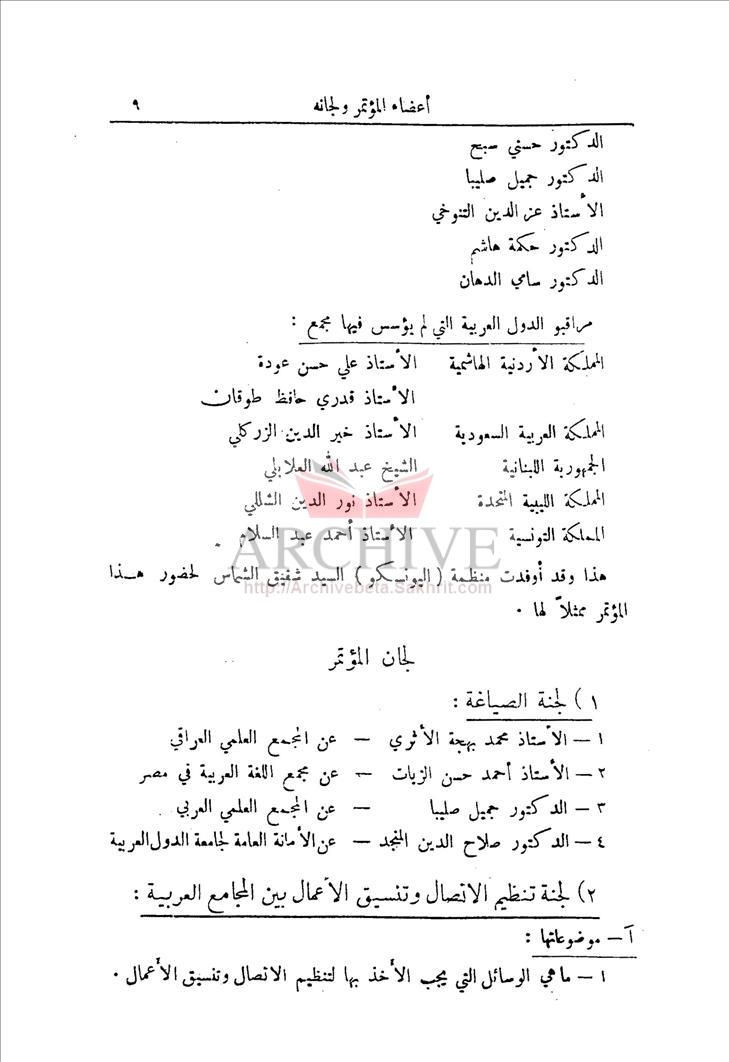 أعضاء المؤتمر ولجانه ٩
الدكتور حسني سبح
الدكتور جميل صليبا
الأستاذ عز الدين التنوخي
الدكتور حكمة هاشم
الدكتور سامي الدهان
مراقبو الدول العربية التي لم يؤسس فيها مجمع :
المملكة الأردنية الهاشمية الأستاذ علي حسن عودة
الأستاذ قدري حافظ طوقان
المملكة العربية السعودية الأستاذ خير الدين الزركلي
الجمهورية اللبنانية الشيخ عبد الله العلايلي
المملكة الليبية المتحدة الأستاذ نور الدين الشللي
المملكة التونسية الأستاذ أحمد عبد السلام .
ARCHIVE
هذا وقد أوفدت منظمة ( اليونسكو ) السيد شفيق الشماس لحضور هذا
http://Archivebeta.Sakhrit.com
المؤتمر ممثلاً لها .
لجان المؤتمر
١ ) لجنة الصياغة :
١ – الأستاذ محمد بهجة الأثري – عن المجمع العلمي العراقي
٢ – الأستاذ أحمد حسن الزيات – عن مجمع اللغة العربية في مصر
٣ – الدكتور جميل صليبا – عن المجمع العلمي العربي .
٤ – الدكتور صلاح الدين المنجد – عن الأمانة العامة لجامعة الدول العربية
٢) لجنة تنظيم الاتصال وتنسيق الأعمال بين المجامع العربية :
آ – موضوعاتها :
١ – ماهي الوسائل التي يجب الأخذ بها لتنظيم الاتصال وتنسيق الأعمال .